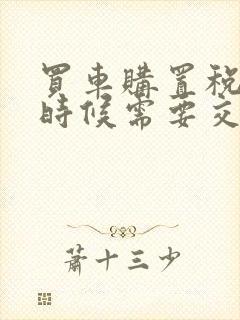 買車購置稅
時候需要交
蕭十三少